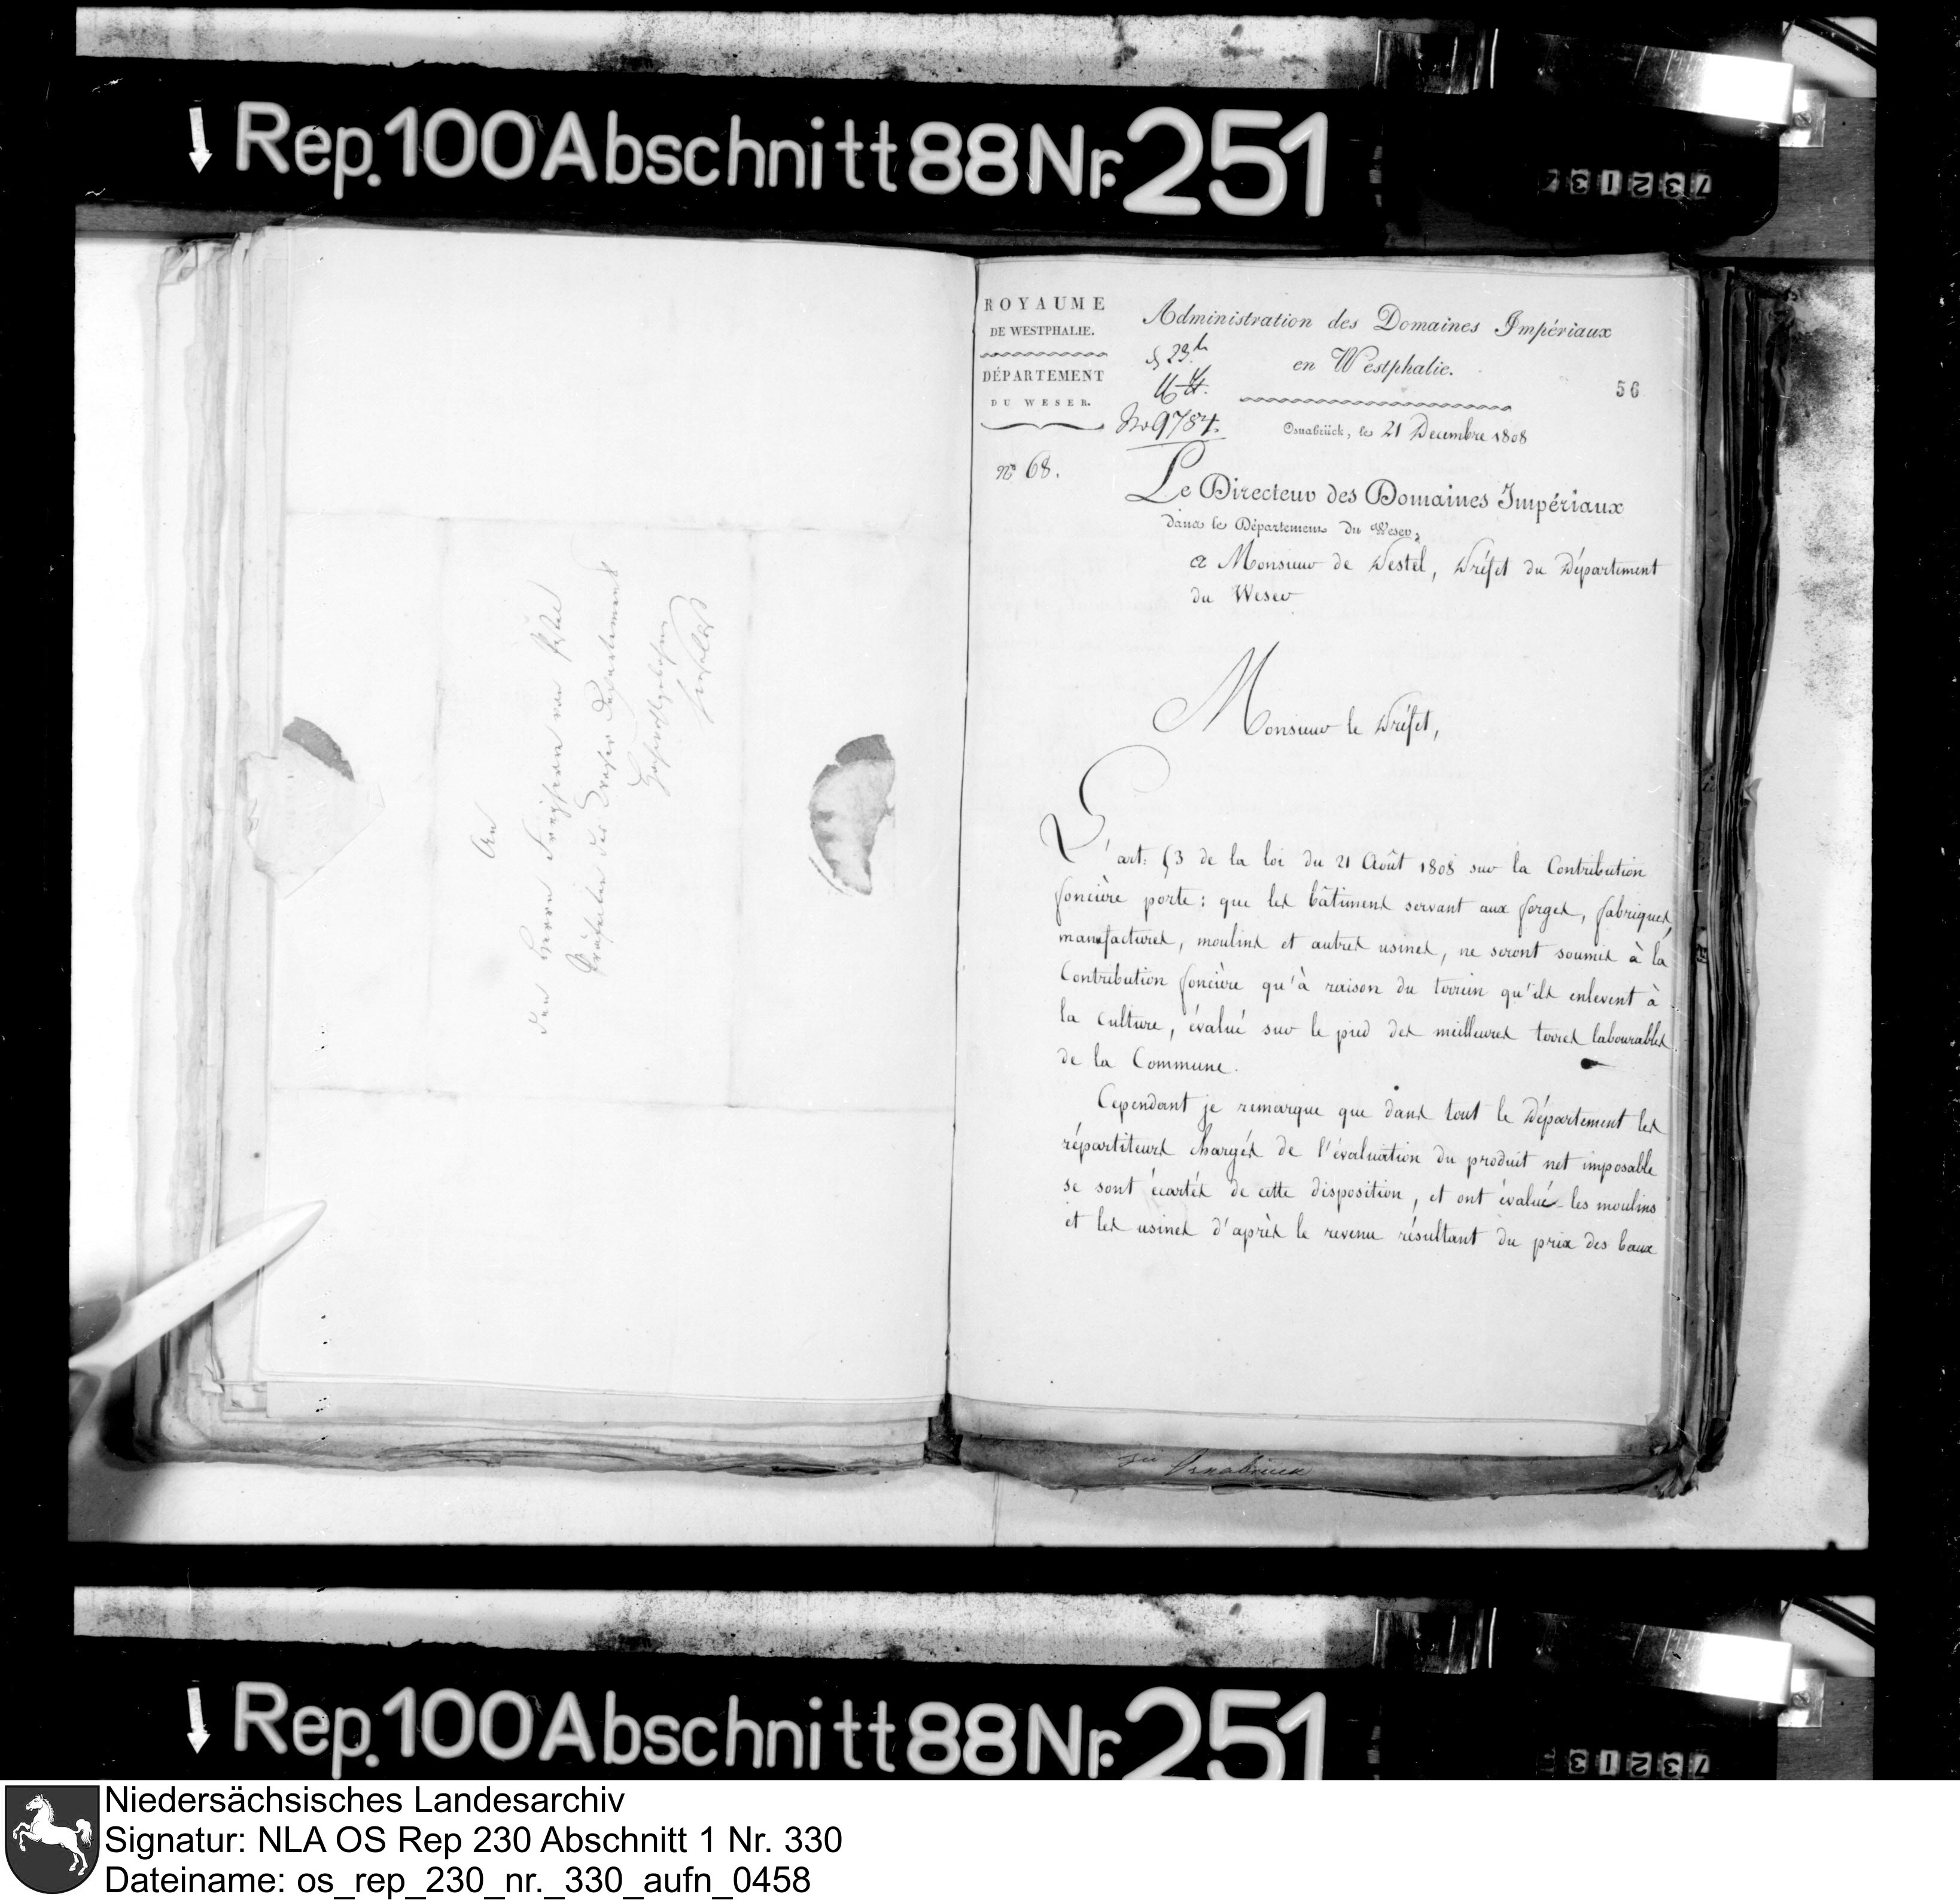 Rep. 100 Abschnitt 88 Nr. 251
An
den Herrn Freiherrn von Pestel
Präfecten des Weser Departements
Hochwohlgeboren
ROYAUME
DE WESTPHALIE.
DÉPARTEMENT
DU WESER.
Administration des Domaines Impériaux
en Westphalie.
56
No 9784.
Osnabrück, le 21 Decembre 1808
No 68.
Le Directeur des Domaines Impériaux
dans le Département du Weser,
a Monsieur de Pestel, Préfet du Département
du Weser
Monsieur le Préfet,
L'art: 53 de la loi du 21 Août 1808 sur la Contribution
foncière porte: que les bâtimens servant aux forges, fabriques,
manufactures, moulins et autres usines, ne seront soumis à la
Contribution foncière qu'à raison du terrein qu'ils enlevent à
la culture, évalué sur le pied des meilleures terres labourables
de la Commune.
Cependant je remarque que dans tout le Département les
répartiteurs chargés de l'évaluation du produit net imposable
se sont écartés de cette disposition, et ont évalué les moulins
et les usines d'après le revenu résultant du prix des baux
zu Osnabrück
Rep. 100 Abschnitt 88 Nr. 251
Niedersächsisches Landesarchiv
Signatur: NLA OS Rep 230 Abschnitt 1 Nr. 330
Dateiname: os_rep_230_nr._330_aufn_0458